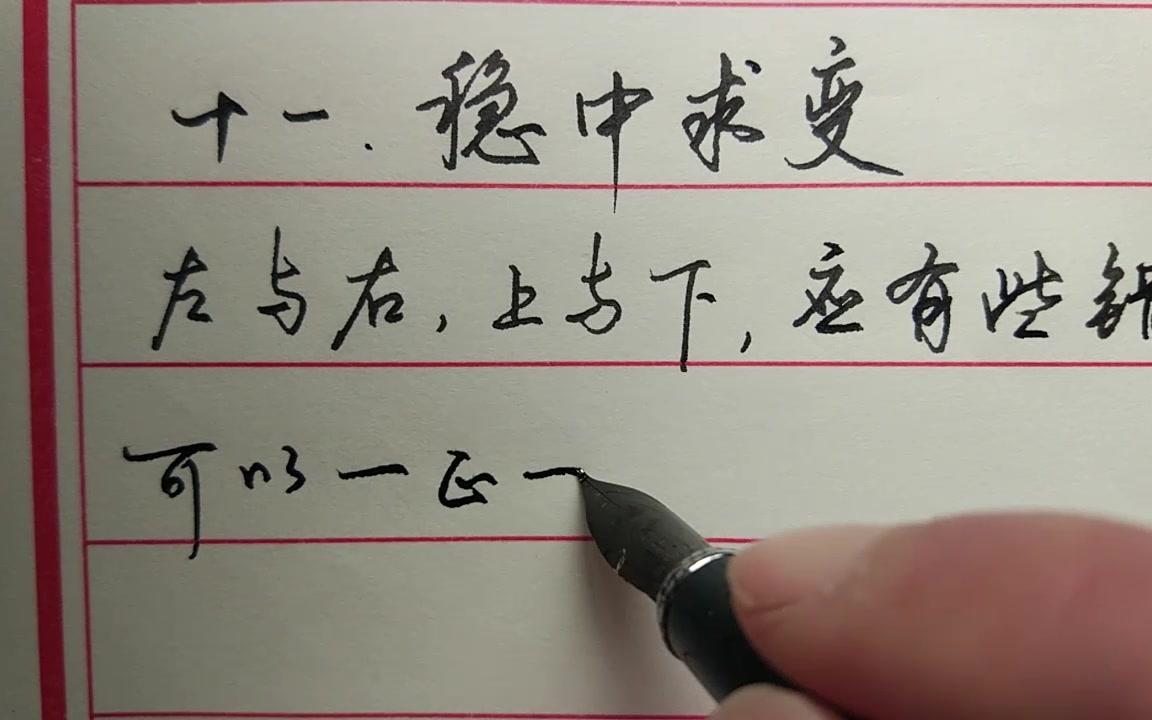 十一.稳中求变
左与右,上与下,应有些
可以一正一